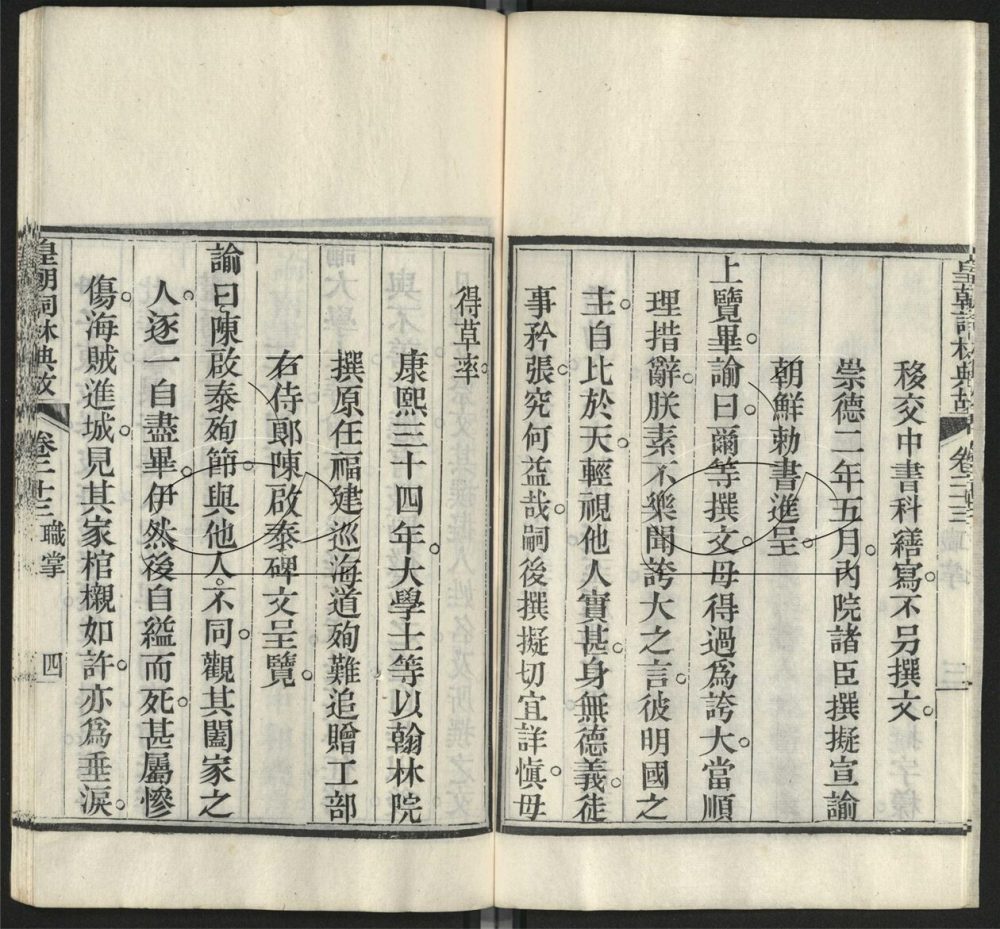 移交中書科繕寫。不另撰文。
崇德二年五月。內院諸臣撰擬宣諭
朝鮮勅書進呈。
上覽畢。諭曰。爾等撰文。毋得過爲誇大。當順
理措辭。朕素不樂聞誇大之言。彼明國之
主。自比於天。輕視他人。實甚。身無德義。徒
事矜張。究何益哉。嗣後撰擬。切宜詳愼。毋
得草率。
康熙三十四年。大學士等以翰林院
撰原任福建巡海道殉難追贈工部
右侍郞陳啟泰碑文呈覽。
諭曰。陳啟泰殉節。與他人不同。觀其闔家之
人。逐一自盡畢。伊然後自縊而死。甚屬慘
傷。海賊進城。見其家棺櫬如許。亦爲垂淚。
皇朝詞林典故 卷二十三 職掌 四